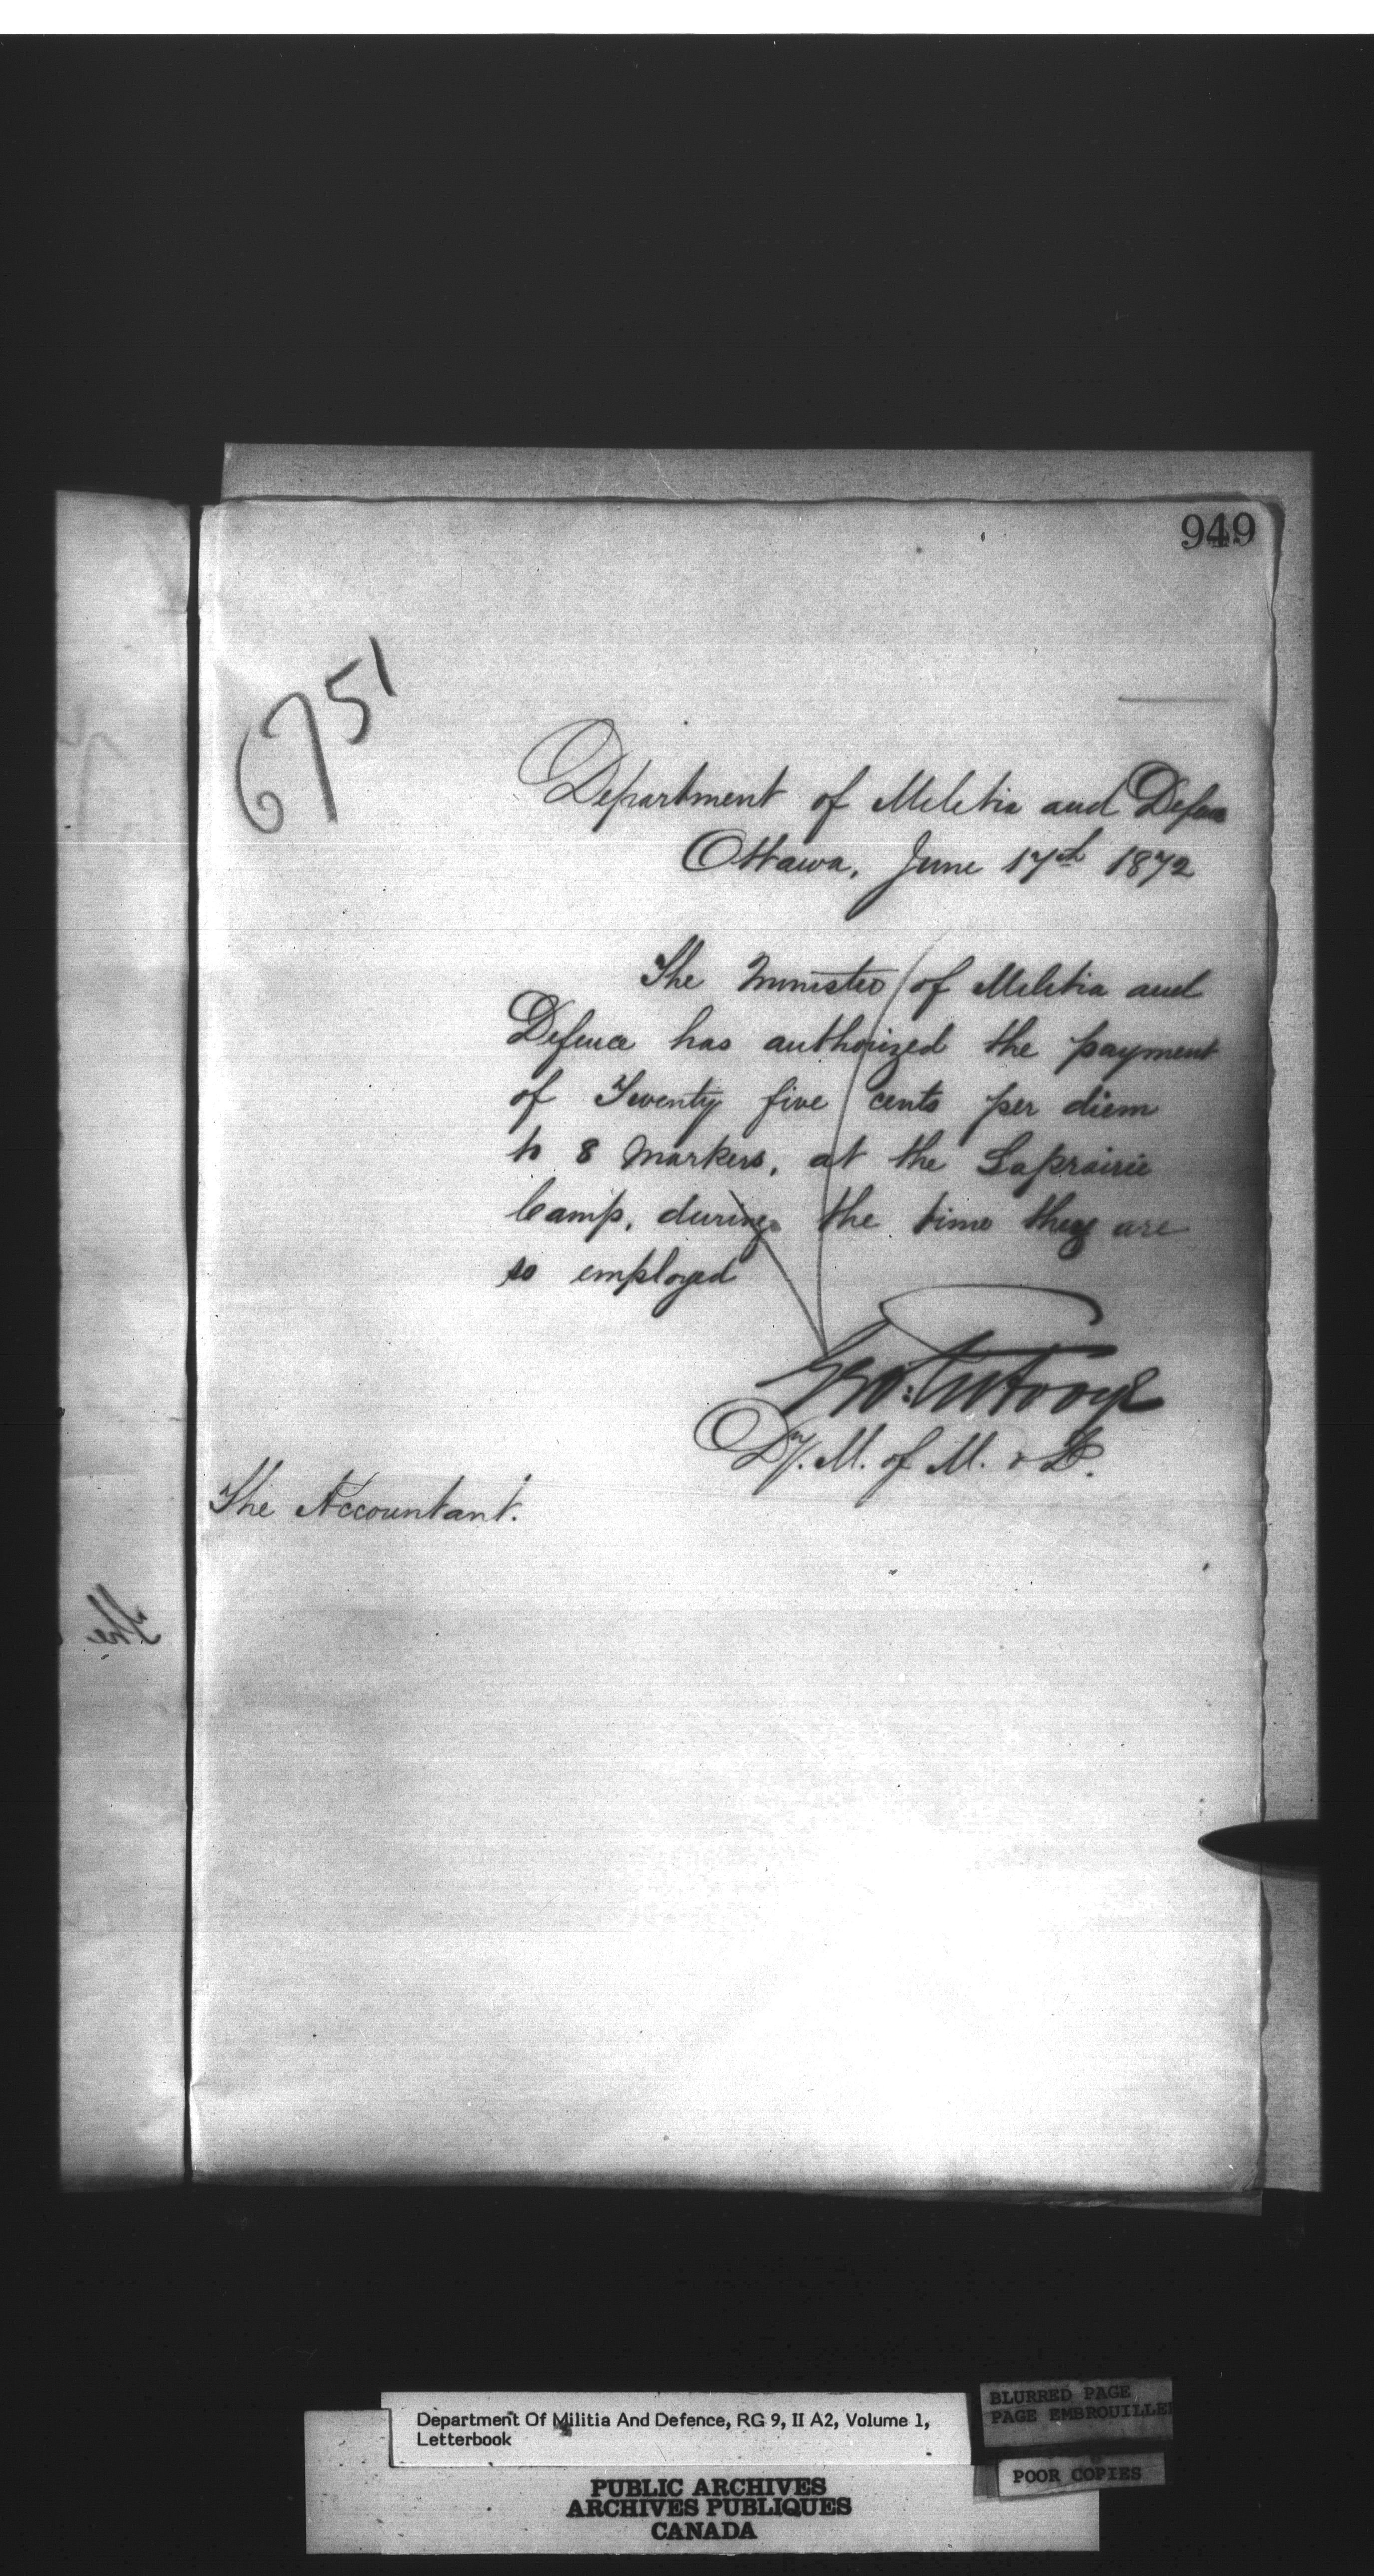 949
6751
Department of Militia and Defence
Ottawa, June 17th 1872
The Minister of Militia and
Defence has authorized the payment
of Twenty five cents per diem
to 8 Markers, at the Laprairie
Camp, during the time they are
so employed
Geo: Futvoye
Dy. M. of M. & D.
The Accountant.
The
Department Of Militia And Defence, RG 9, II A2, Volume 1,
Letterbook
BLURRED PAGE
PAGE EMBROUILLEE
POOR COPIES
PUBLIC ARCHIVES
ARCHIVES PUBLIQUES
CANADA